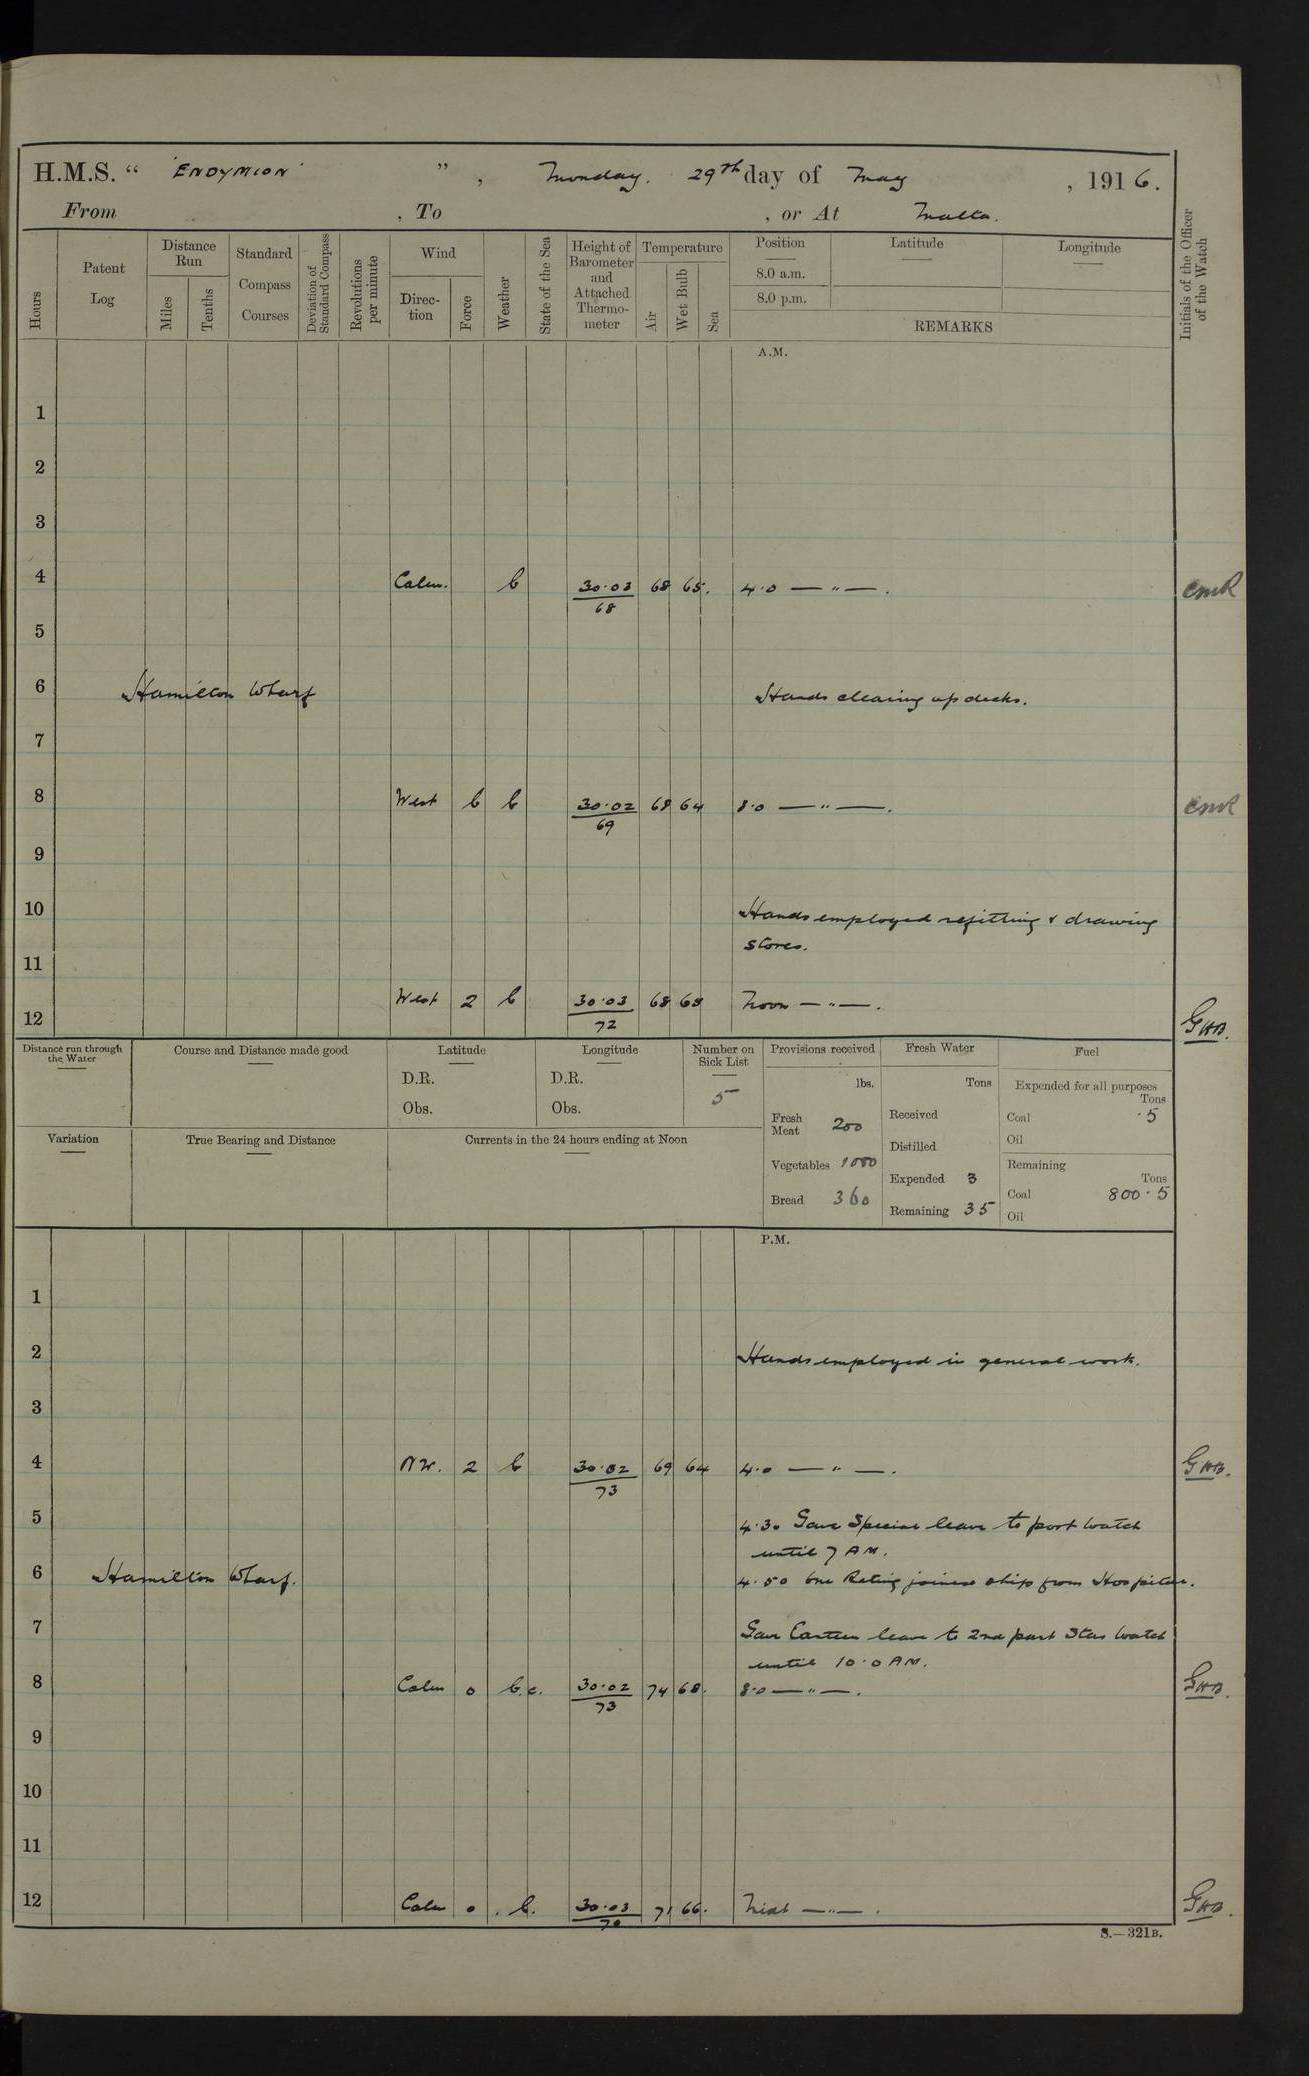 H.M.S. " 'ENDYMION' ", Monday. 29th day of May, 1916.
From , To , or At Malta.
Hours
Patent Log
Distance Run
Miles
Tenths
Standard Compass Courses
Deviation of Standard Compass
Revolutions per minute
Wind
Direc-tion
Force
Weather
State of the Sea
Height of Barometer and Attached Thermo-meter
Temperature
Air
Wet Bulb
Sea
Position
8.0 a.m.
8.0 p.m.
Latitude
Longitude
REMARKS
Initials of the Officer of the Watch
A.M.
1
2
3
4 Calm. b 30.03 68 65. 4.0 — " — .
68
5
6 Hamilton Wharf Hands clearing up decks.
7
8 West b b 30.02 68 64 8.0 — " — .
69
9
10 Hands employed refitting & drawing
stores.
11
12 West 2 b 30.03 68 68 Noon — " — . GHB.
72
Distance run through the Water
Course and Distance made good
Latitude
D.R.
Obs.
Longitude
D.R.
Obs.
Number on Sick List
5
Provisions received
lbs.
Fresh Meat 200
Vegetables 1000
Bread 360
Fresh Water
Tons
Received
Distilled
Expended 3
Remaining 35
Fuel
Expended for all purposes
Tons
Coal .5
Oil
Remaining
Tons
Coal 800.5
Oil
Variation
True Bearing and Distance
Currents in the 24 hours ending at Noon
P.M.
1
2 Hands employed in general work.
3
4 NW. 2 b 30.02 69 64 4.0 — " — . GHB.
73
5 4.30 Gave Special leave to port watch
until 7 AM.
6 Hamilton Wharf. 4.50 One Rating joined ship from Hospital.
7 Gave Canteen leave to 2nd part Star watch
until 10.0 AM.
8 Calm 0 b.c. 30.02 74 68. 8.0 — " — . GHB.
73
9
10
11
12 Calm 0 . b. 30.03 71 66. Midt — " — . GHB.
70
S.—321B.